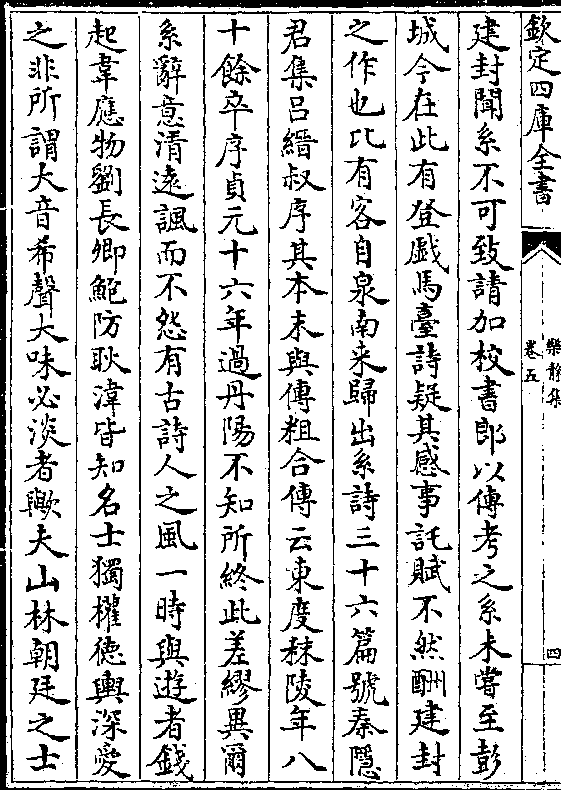 欽定四庫全書
樂静集
卷五
四
建封聞系不可致請加校書郎以傳考之系未嘗至彭
城今在此有登戲馬臺詩疑其感事託賦不然酬建封
之作也比有客自泉南来歸出系詩三十六篇號秦隱
君集吕縉叔序其本末與傳粗合傳云東度秣陵年八
十餘卒序貞元十六年過丹陽不知所終此差繆異爾
系辭意清遠諷而不怨有古詩人之風一時與遊者錢
起韋應物劉長卿鮑防耿湋皆知名士獨權徳輿深愛
之非所謂大音希聲大味必淡者歟夫山林朝廷之士